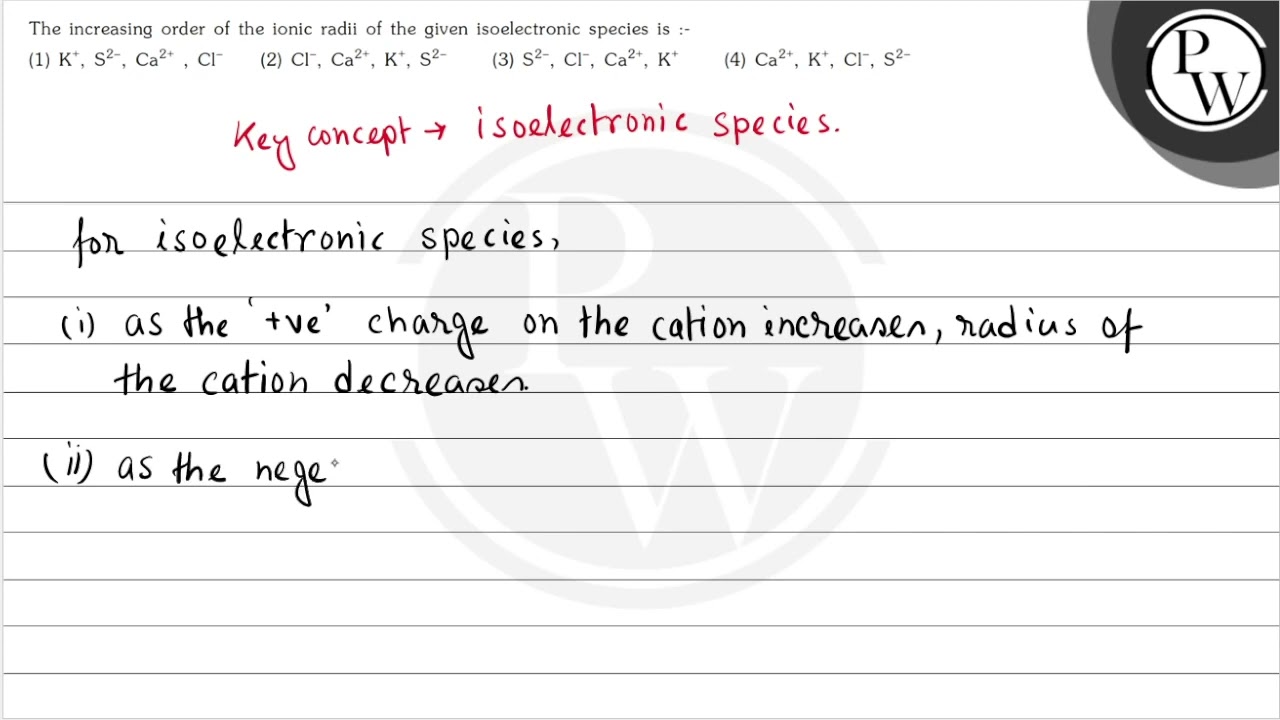 The increasing order of the ionic radii of the given isoelectronic species is :-
(1) K⁺, S²⁻, Ca²⁺ , Cl⁻ (2) Cl⁻, Ca²⁺, K⁺, S²⁻ (3) S²⁻, Cl⁻, Ca²⁺, K⁺ (4) Ca²⁺, K⁺, Cl⁻, S²⁻
PW
Key concept → isoelectronic species.
for isoelectronic species,
(i) as the '+ve' charge on the cation increases, radius of
the cation decreases.
(ii) as the nege